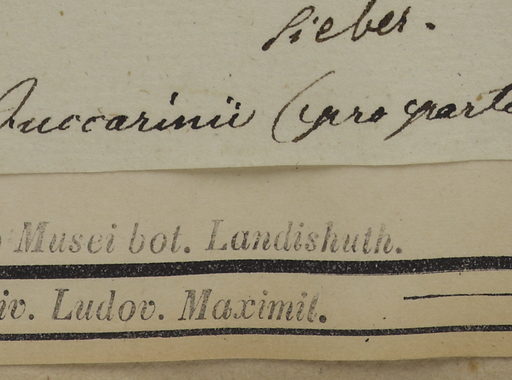 Sieber.
Zuccarinii (pro parte
Musei bot. Landishuth.
iv. Ludov. Maximil.